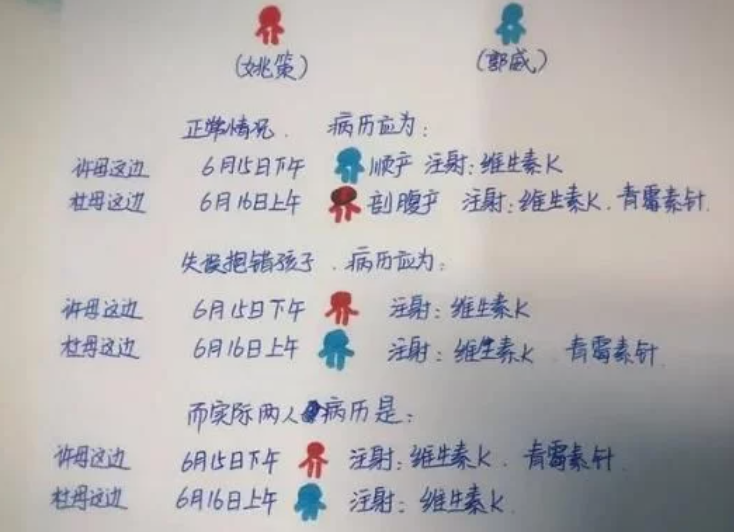 (姚策) (郭威)
正常情况. 病历应为:
许母这边 6月15日下午 顺产 注射:维生素K
杜母这边 6月16日上午 剖腹产 注射:维生素K.青霉素针.
失误抱错孩子.病历应为:
许母这边 6月15日下午 注射:维生素K
杜母这边 6月16日上午 注射:维生素K 青霉素针.
而实际两人病历是:
许母这边 6月15日下午 注射:维生素K.青霉素针.
杜母这边 6月16日上午 注射:维生素K.